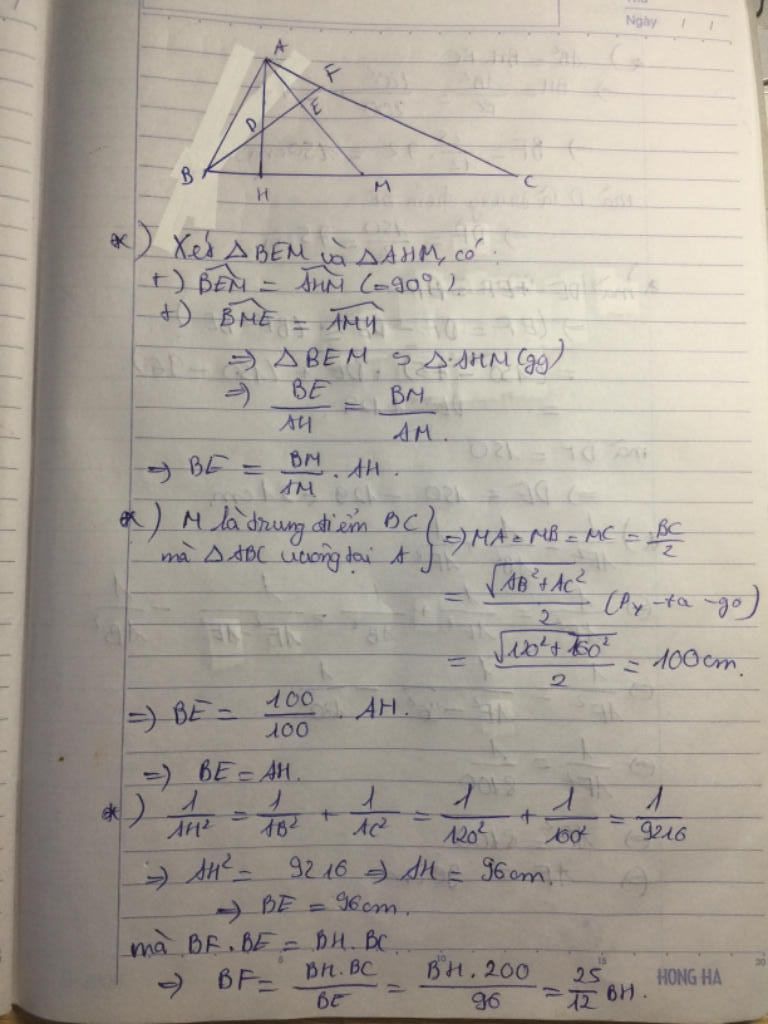 Ngày / /
A
F
E
D
B
H
M
C
*) Xét △BEM và △AHM, có:
+) $\widehat{BEM}$ = $\widehat{AHM}$ (=90°)
+) $\widehat{BME}$ = $\widehat{AMH}$
⇒ △BEM ∽ △AHM (gg)
⇒ $\frac{BE}{AH} = \frac{BM}{AM}$.
⇒ BE = $\frac{BM}{AM}$ . AH.
*) M là trung điểm BC
mà △ABC vuông tại A } ⇒ MA = MB = MC = $\frac{BC}{2}$
= $\frac{\sqrt{AB^2+AC^2}}{2}$ (Py-ta-go)
= $\frac{\sqrt{120^2+160^2}}{2}$ = 100cm.
⇒ BE = $\frac{100}{100}$ . AH.
⇒ BE = AH.
*) $\frac{1}{AH^2} = \frac{1}{AB^2} + \frac{1}{AC^2} = \frac{1}{120^2} + \frac{1}{160^2} = \frac{1}{9216}$
⇒ AH² = 9216 ⇒ AH = 96cm.
⇒ BE = 96cm.
mà BF.BE = BH.BC
⇒ BF = $\frac{BH.BC}{BE} = \frac{BH.200}{96} = \frac{25}{12}$ BH.
5 10 15 20
HONG HA